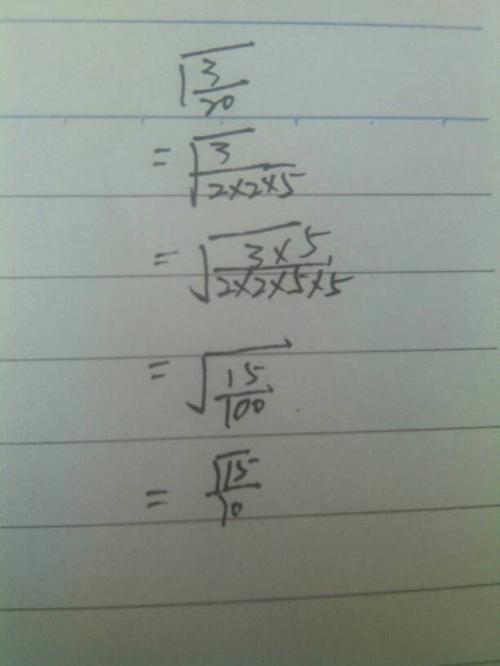 √(3/20)
= √(3/(2×2×5))
= √((3×5)/(2×2×5×5))
= √(15/100)
= √15/10